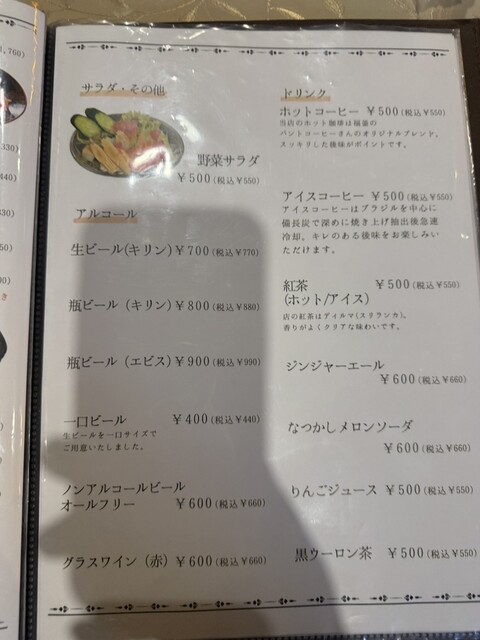 サラダ・その他
野菜サラダ
￥500(税込￥550)
アルコール
生ビール(キリン)￥700(税込￥770)
瓶ビール（キリン）￥800(税込￥880)
瓶ビール（エビス）￥900(税込￥990)
一口ビール ￥400(税込￥440)
生ビールを一口サイズで
ご用意いたしました。
ノンアルコールビール
オールフリー ￥600(税込￥660)
グラスワイン（赤）￥600(税込￥660)
ドリンク
ホットコーヒー ￥500(税込￥550)
当店のホット珈琲は福釜の
バントコーヒーさんのオリジナルブレンド。
スッキリした後味がポイントです。
アイスコーヒー ￥500(税込￥550)
アイスコーヒーはブラジルを中心に
備長炭で深めに焼き上げ抽出後急速
冷却。キレのある後味をお楽しみい
ただけます。
紅茶 ￥500(税込￥550)
(ホット/アイス)
店の紅茶はディルマ(スリランカ)。
香りがよくクリアな味わいです。
ジンジャーエール
￥600(税込￥660)
なつかしメロンソーダ
￥600(税込￥660)
りんごジュース ￥500(税込￥550)
黒ウーロン茶 ￥500(税込￥550)